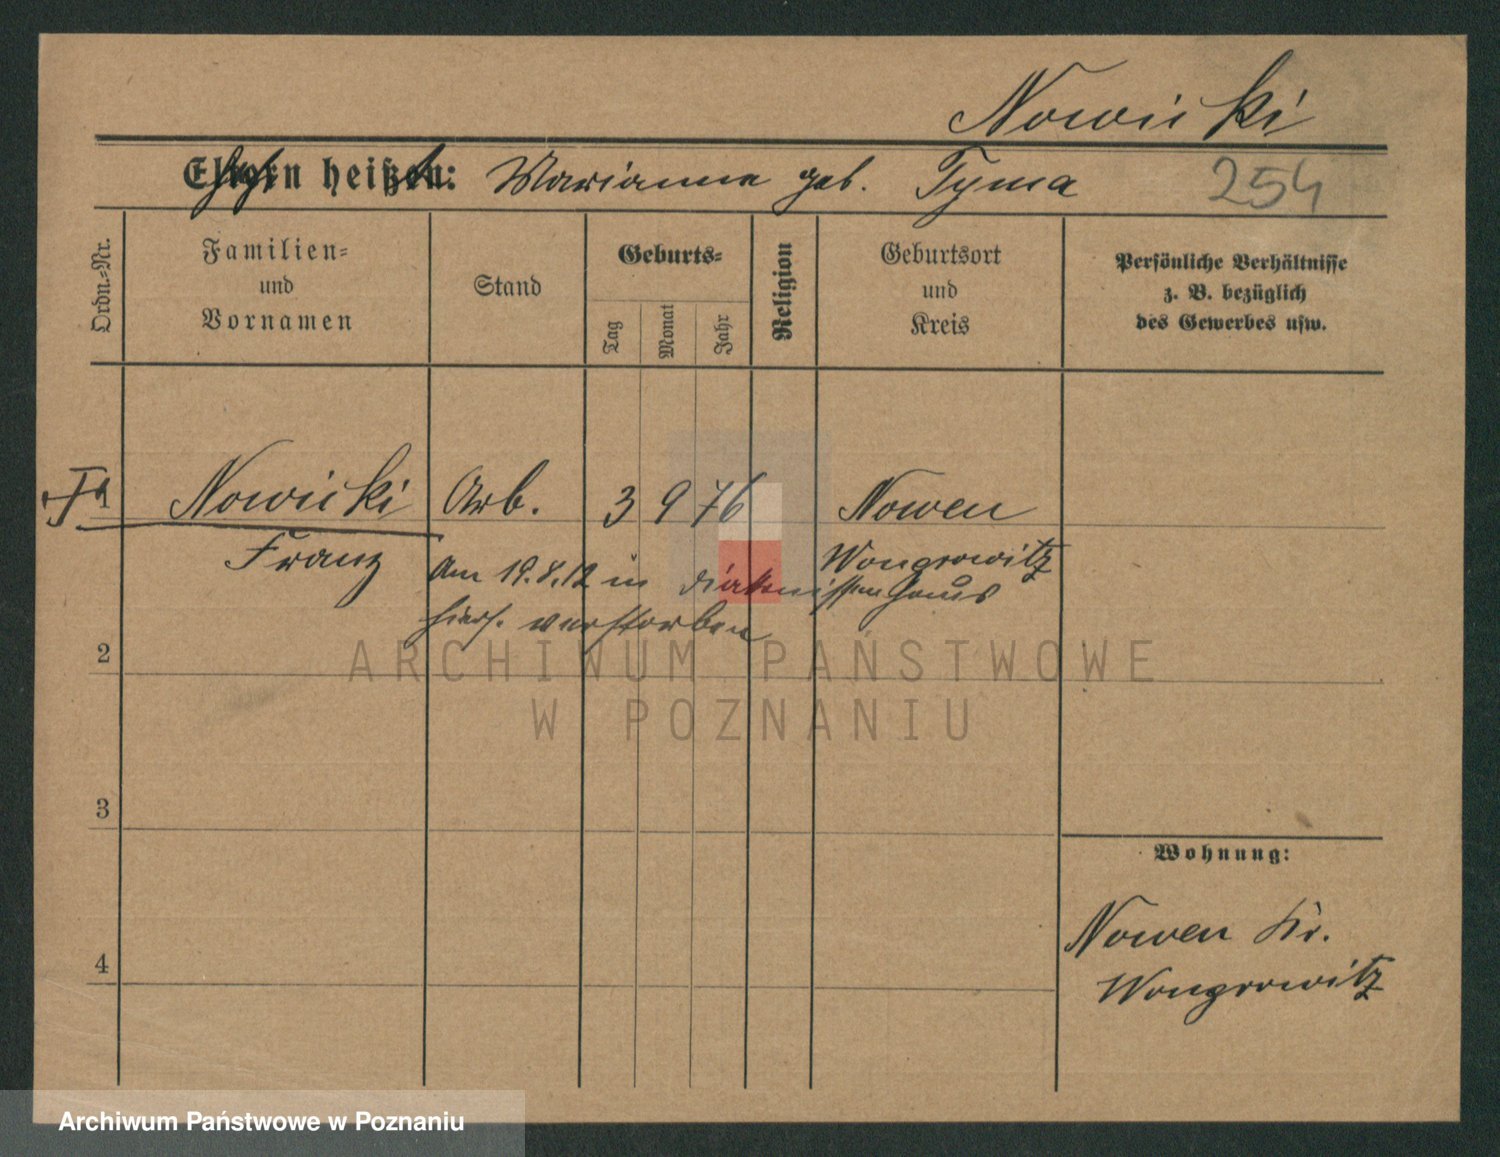 Nowicki
Eltern heißen: Marianna geb. Tyma
254
Ordn.-Nr.
Familien-
und
Vornamen
Stand
Geburts-
Tag
Monat
Jahr
Religion
Geburtsort
und
Kreis
Persönliche Verhältnisse
z. B. bezüglich
des Gewerbes usw.
1
Nowicki Arb. 3 9 76 Nowen
Franz Wongrowitz
Am 19.8.12 in Diakonissenhaus
hiers. verstorben
2
ARCHIWUM PAŃSTWOWE
W POZNANIU
3
Wohnung:
Nowen Kr.
Wongrowitz
4
Archiwum Państwowe w Poznaniu